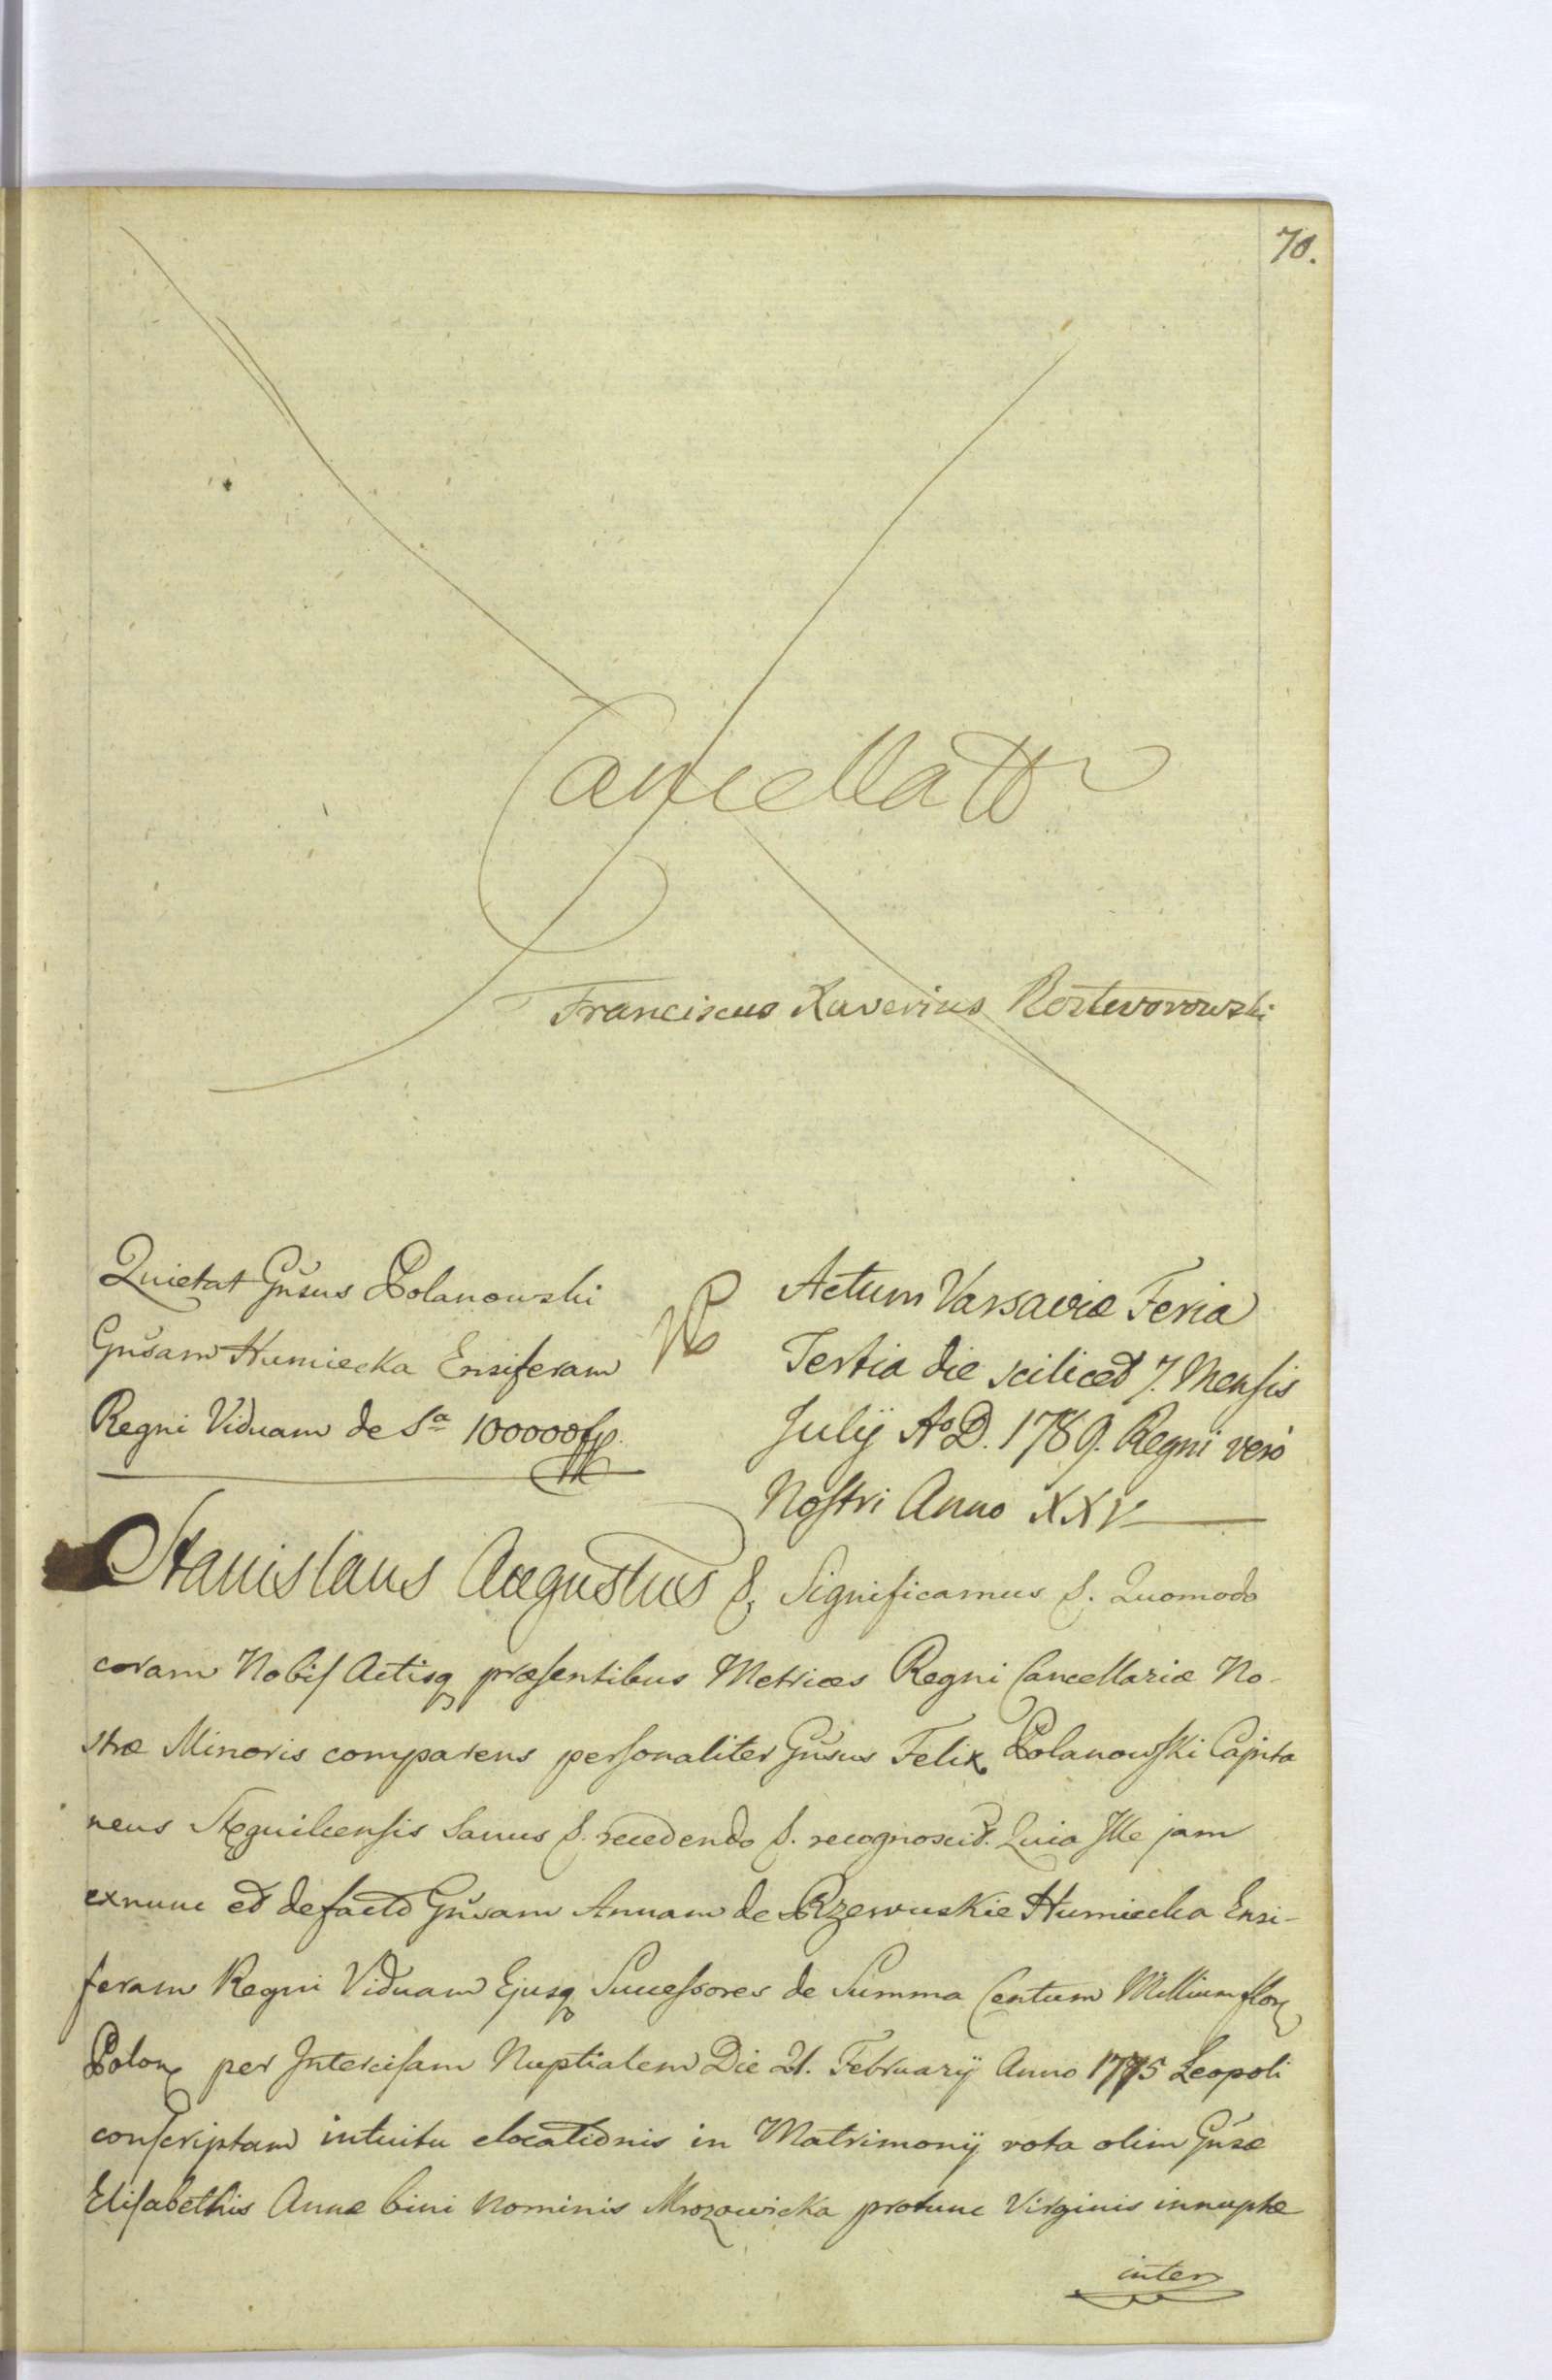 70.
Cancellatt
Franciscus Xaverius Roztworowski
Quietat Gnsus Polanowski
Gnsam Humiecka Ensiferam
Regni Viduam de Sᵃ 100000 fp.
Actum Varsaviæ Feria
Tertia die scilicet 7. Mensis
Julij Aº D. 1789. Regni vero
Nostri Anno XXV
Stanislaus Augustus &. Significamus &. Quomodo
coram Nobis Actisq præsentibus Metrices Regni Cancellariæ No-
stræ Minoris comparens personaliter Gnsus Felix Polanowski Capita
neus Sanus &. recedendo &. recognoscit. Quia Ille jam
exnunc et defacto Gnsam Annam de Rzewuskie Humiecka Ensi-
feram Regni Viduam Ejusq Successores de Summa Centum Millium flor
Polon per Intercisam Nuptialem Die 21. Februarij Anno 1775 Leopoli
conscriptam intuitu elocationis in Matrimonij vota olim Gnsæ
Elisabethis Annæ bini Nominis Mrozowicka protunc Virginis innuptæ
inter